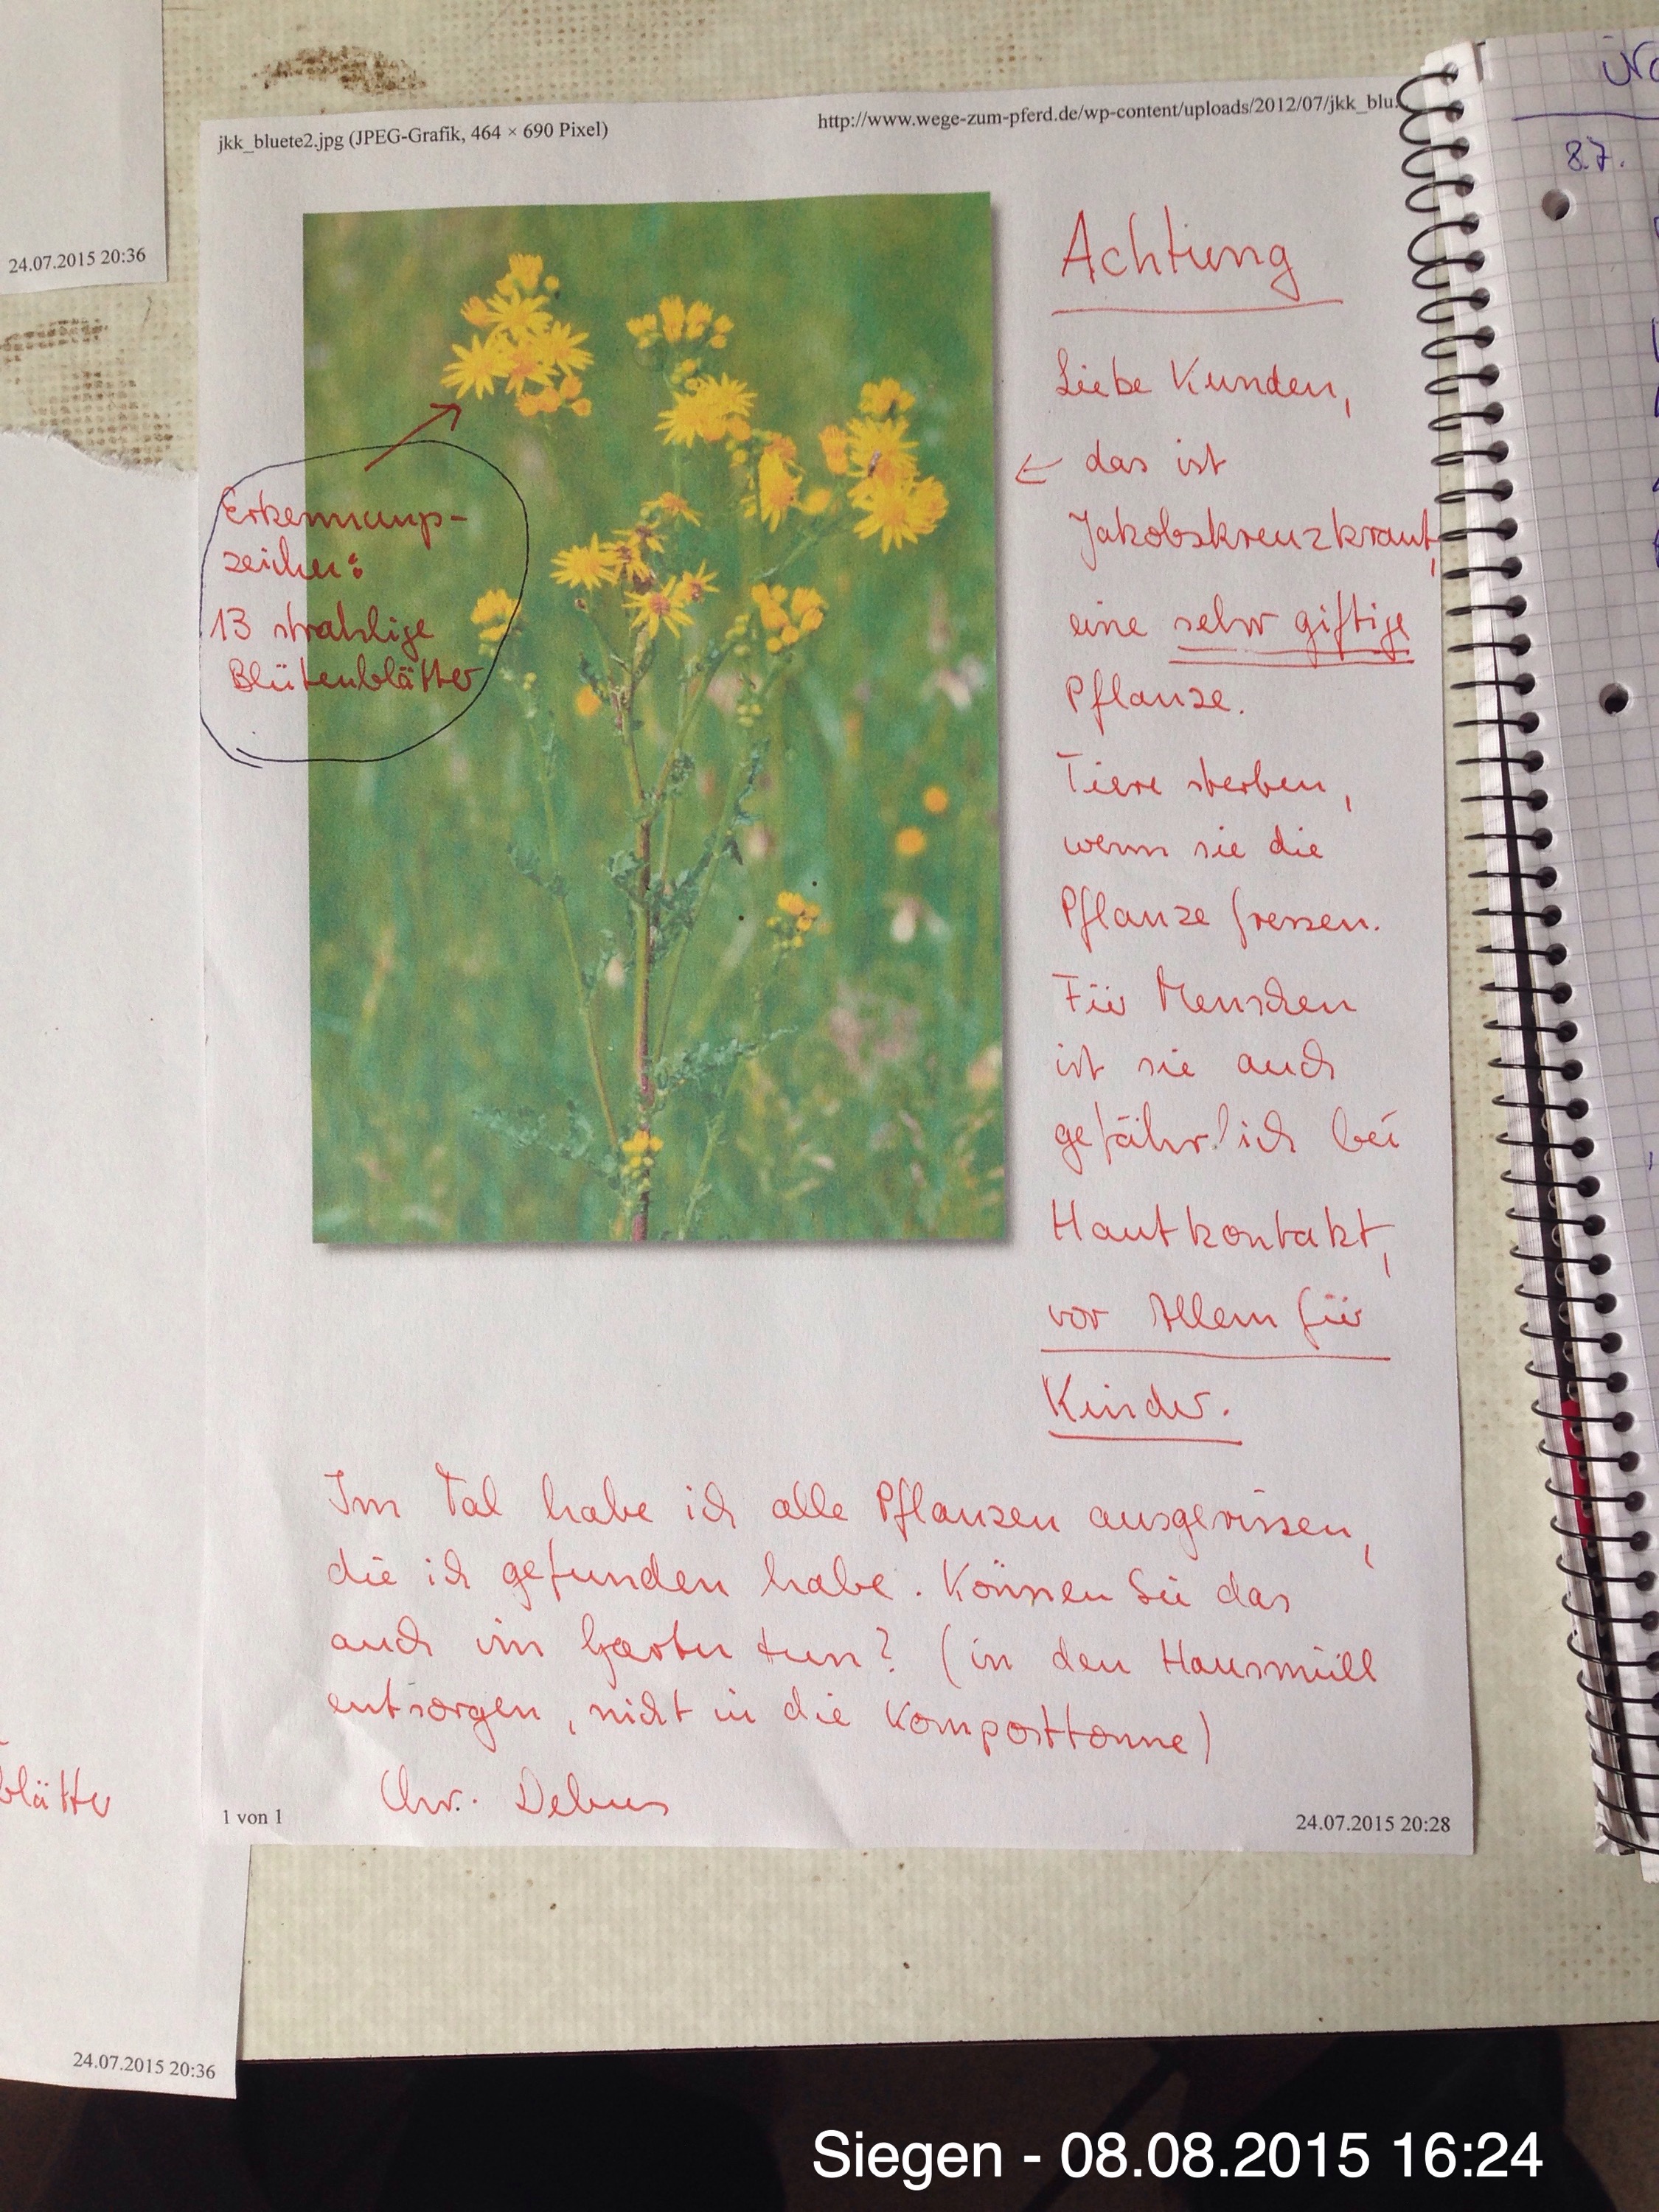 24.07.2015 20:36
jkk_bluete2.jpg (JPEG-Grafik, 464 × 690 Pixel)
http://www.wege-zum-pferd.de/wp-content/uploads/2012/07/jkk_blu.
8.7.
Achtung
Liebe Kunden,
← das ist
Jakobskreuzkraut,
eine sehr giftige
Pflanze.
Tiere sterben,
wenn sie die
Pflanze fressen.
Für Menschen
ist sie auch
gefährlich bei
Hautkontakt,
vor Allem für
Kinder.
Erkennungs-
zeichen:
13 strahlige
Blütenblätter
Im Tal habe ich alle Pflanzen ausgerissen,
die ich gefunden habe. Können Sie das
auch im Garten tun? (in den Hausmüll
entsorgen, nicht in die Komposttonne)
Chr. Debus
1 von 1
24.07.2015 20:28
blätter
24.07.2015 20:36
Siegen - 08.08.2015 16:24